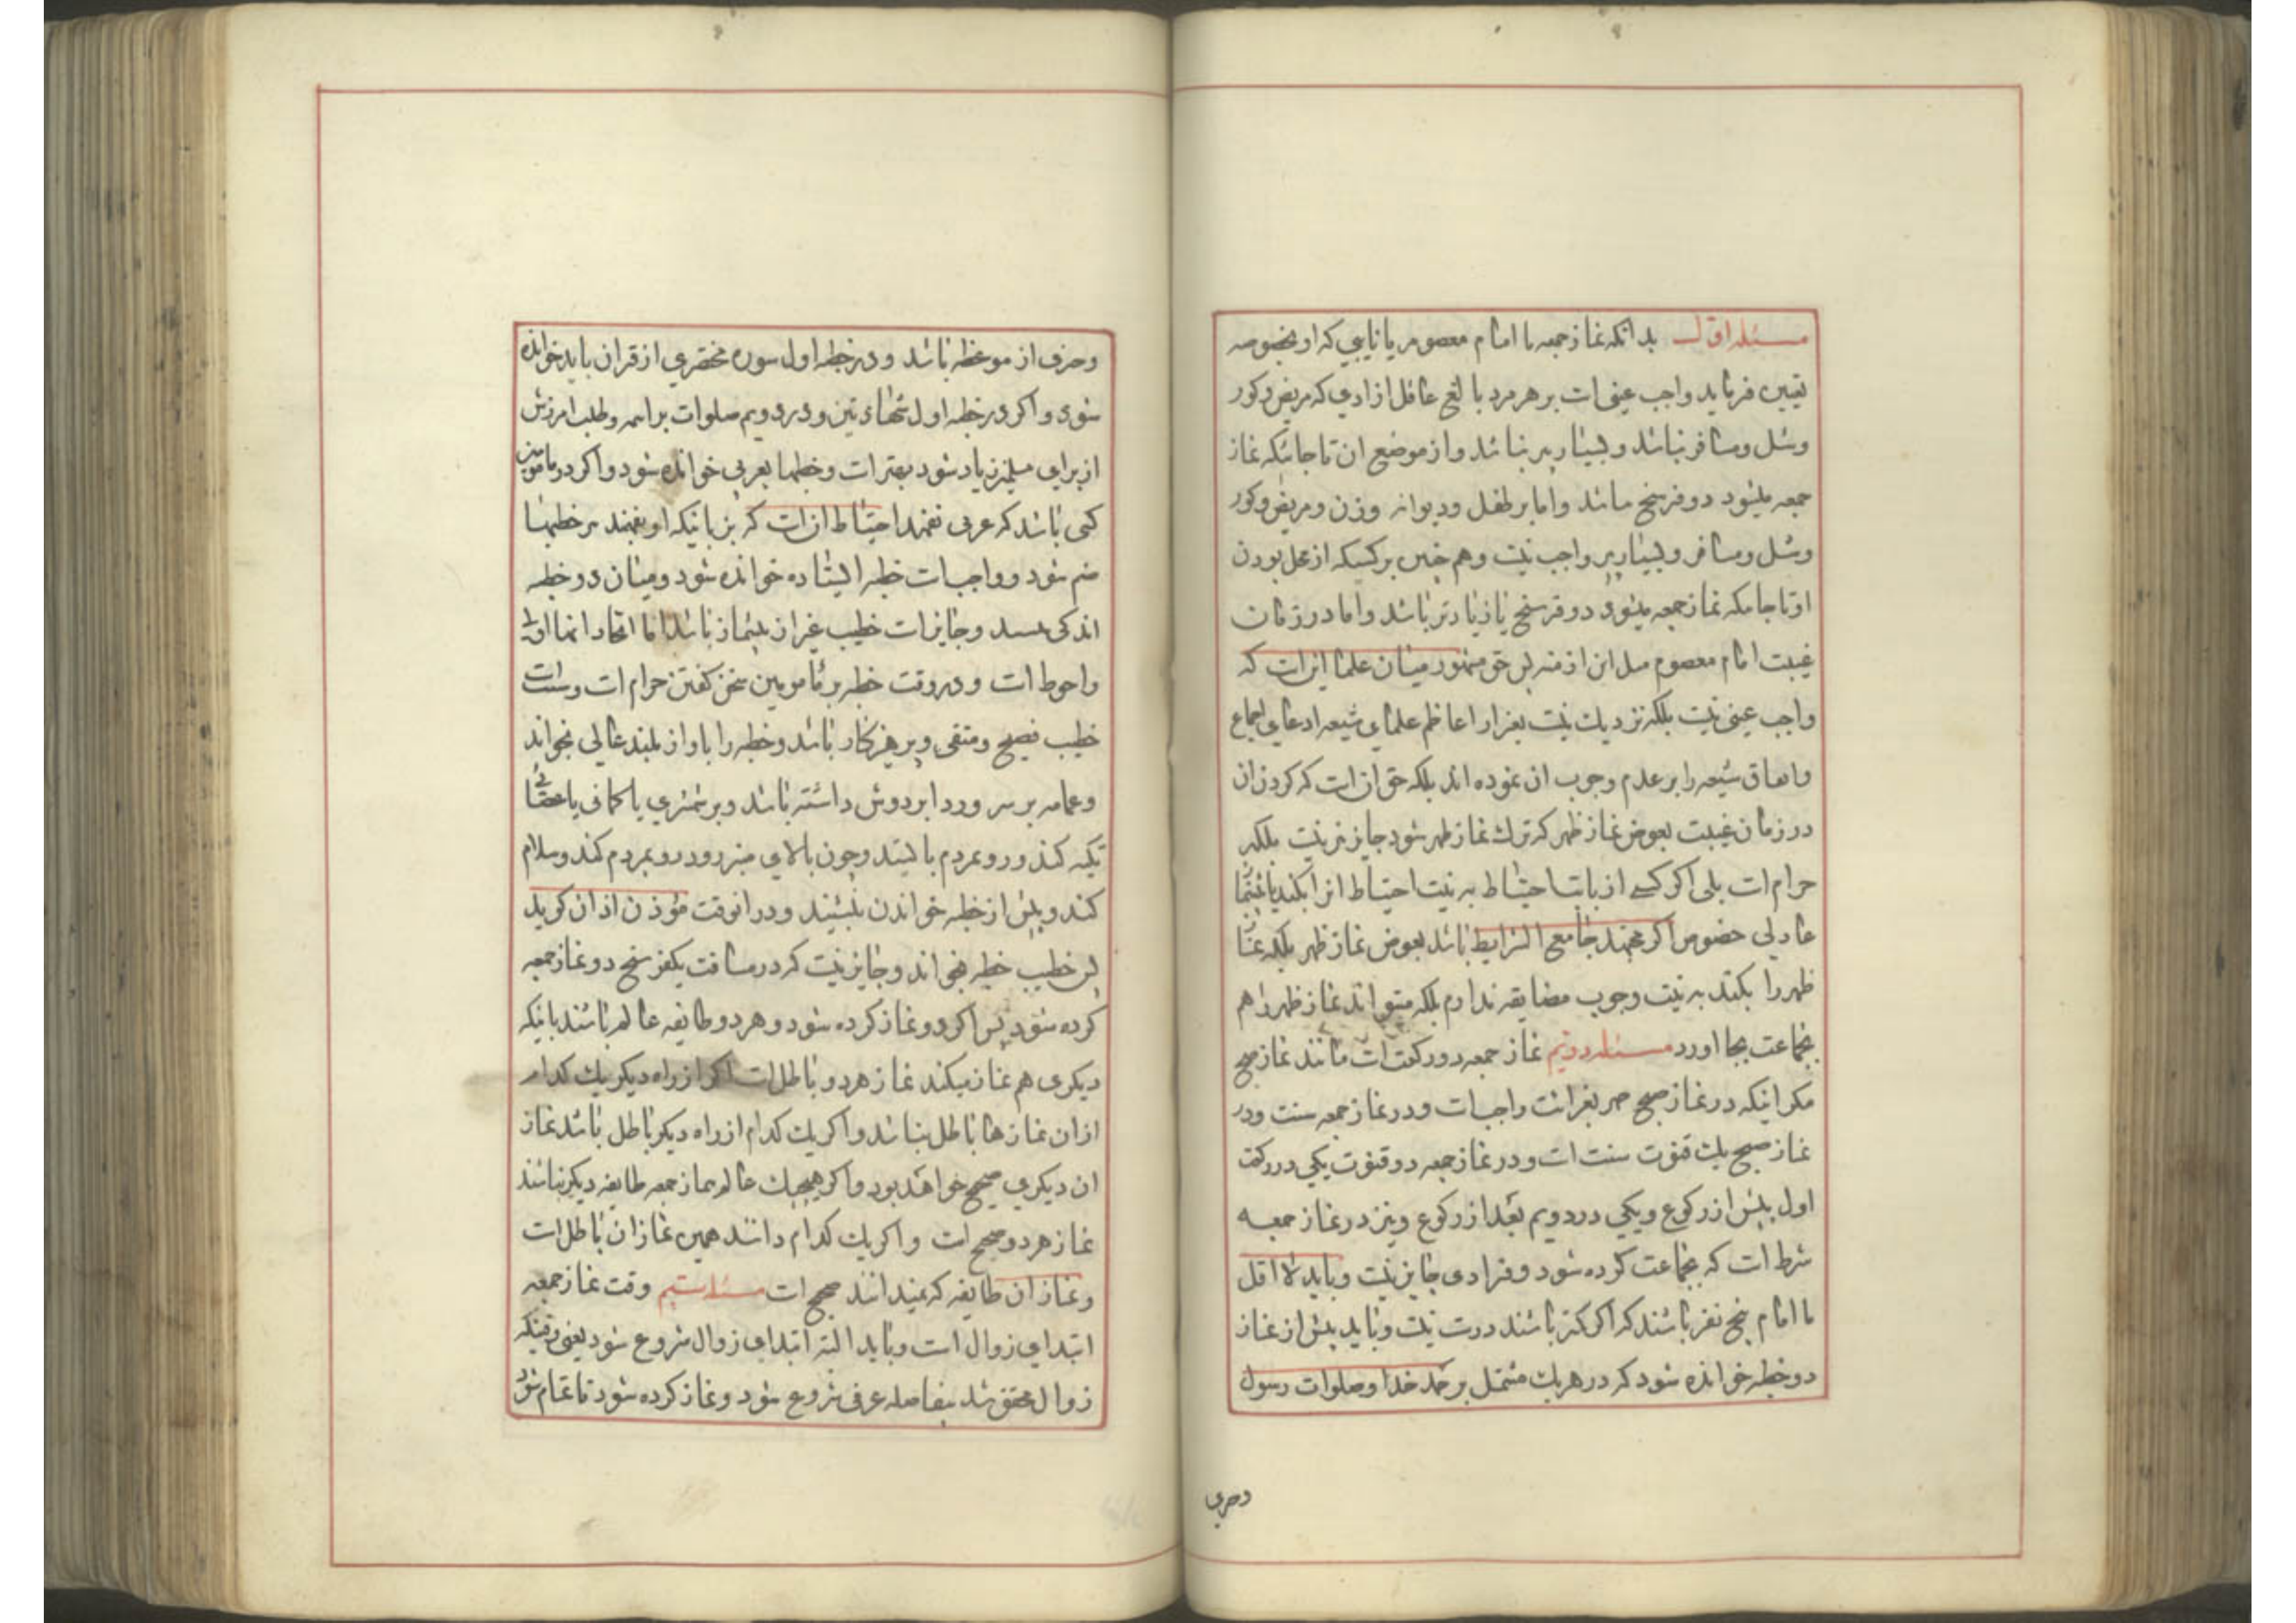 مسئله اول بدانکه نماز جمعه با امام معصوم یا نایبی که او بخصوصه
تعیین فرماید واجب عینی است بر هر مرد بالغ عاقل ازادی که مریض و کور
و شل و مسافر نباشد و بسیار پیر نباشد و از موضع ان تا جائیکه نماز
جمعه میشود دو فرسخ باشد و اما بر طفل و دیوانه و زن و مریض و کور
و شل و مسافر و بسیار پیر واجب نیست و هم چنین بر کسیکه از محل بودن
او تا جائیکه نماز جمعه میشود دو فرسخ یا زیادتر باشد و اما در زمان
غیبت امام معصوم مثل این ازمنه پس حق مشهور میان علما این است که
واجب عینی نیست بلکه نزدیک نیست بغیر از اعاظم علمای شیعه ادعای اجماع
و اتفاق شیعه را بر عدم وجوب ان نموده اند بلکه حق ان است که کردن ان
در زمان غیبت بعوض نماز ظهر که ترک نماز ظهر شود جایز نیز نیست بلکه
حرام است بلی اگر کسی از باب احتیاط به نیت احتیاط انرا بکند با پیشنماز
عادلی خصوص اگر مجتهد جامع الشرایط باشد بعوض نماز ظهر بلکه نماز
ظهر را بکند به نیت وجوب مضایقه ندارم بلکه میتواند نماز ظهر را هم
بجماعت بجا اورد مسئله دویم نماز جمعه دو رکعت است مانند نماز صبح
مگر اینکه در نماز صبح جهر بقرائت واجب است و در نماز جمعه سنت و در
نماز صبح یک قنوت سنت است و در نماز جمعه دو قنوت یکی در رکعت
اول پیش از رکوع و یکی در دویم بعد از رکوع و نیز در نماز جمعه
شرط است که بجماعت کرده شود و فرادی جایز نیست و باید لا اقل
با امام پنج نفر باشند که اگر کمتر باشند درست نیست و باید پیش از نماز
دو خطبه خوانده شود که در هر یک مشتمل بر حمد خدا و صلوات رسول
وحرفی
وحرفی از موعظه باشد و در خطبه اول سوره مختصری از قران باید خوانده
شود و اگر در خطبه اول شهادتین و در دویم صلوات بر ائمه و طلب امرزش
از برای مسلمین زیاد شود بهتر است و خطبها بعربی خوانده شود و اگر در مامومین
کسی باشد که عربی نفهمد احتیاط ان است که بزبانیکه او بفهمند بر خطبها
ضم شود و واجب است خطبه ایستاده خوانده شود و میان دو خطبه
اندکی بنشیند و جایز است خطیب غیر از پیشنماز باشد اما اتحاد انها اولی
و احوط است و در وقت خطبه بر مامومین سخن گفتن حرام است و سنت است
خطیب فصیح و متقی و پرهیزکار باشد و خطبه را باواز بلند عالی بخواند
و عمامه بر سر و ردا بر دوش داشته باشد و بر شمشیری یا کمانی یا عصائی
تکیه کند و رو بمردم بایستد و چون بالای منبر رود رو بمردم کند و سلام
کند و پیش از خطبه خواندن بنشیند و در انوقت مؤذن اذان گوید
پس خطیب خطبه بخواند و جایز نیست که در مسافت یکفرسخ دو نماز جمعه
کرده شود پس اگر دو نماز کرده شود و هر دو طایفه عالم باشند باینکه
دیگری هم نماز میکند نماز هر دو باطل است اگر از راه دیگر یک کدام
از ان نمازها باطل نباشد و اگر یک کدام از راه دیگر باطل باشد نماز
ان دیگری صحیح خواهد بود و اگر هیچیک عالم بنماز جمعه طایفه دیگر نباشند
نماز هر دو صحیح است و اگر یک کدام دانند همین نماز ان باطل است
و نماز ان طایفه که نمیدانند صحیح است مسئله سیم وقت نماز جمعه
ابتدای زوال است و باید البته ابتدای زوال شروع شود یعنی وقتیکه
زوال محقق شد بیفاصله عرفی شروع شود و نماز کرده شود تا تمام شود